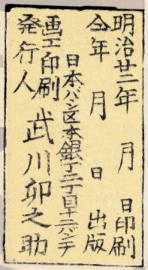 明治廿二年 月 日印刷
仝年 月 日出版
日本バシ区本銀丁二丁目十二バンチ
画工印刷
発行人 武川卯之助